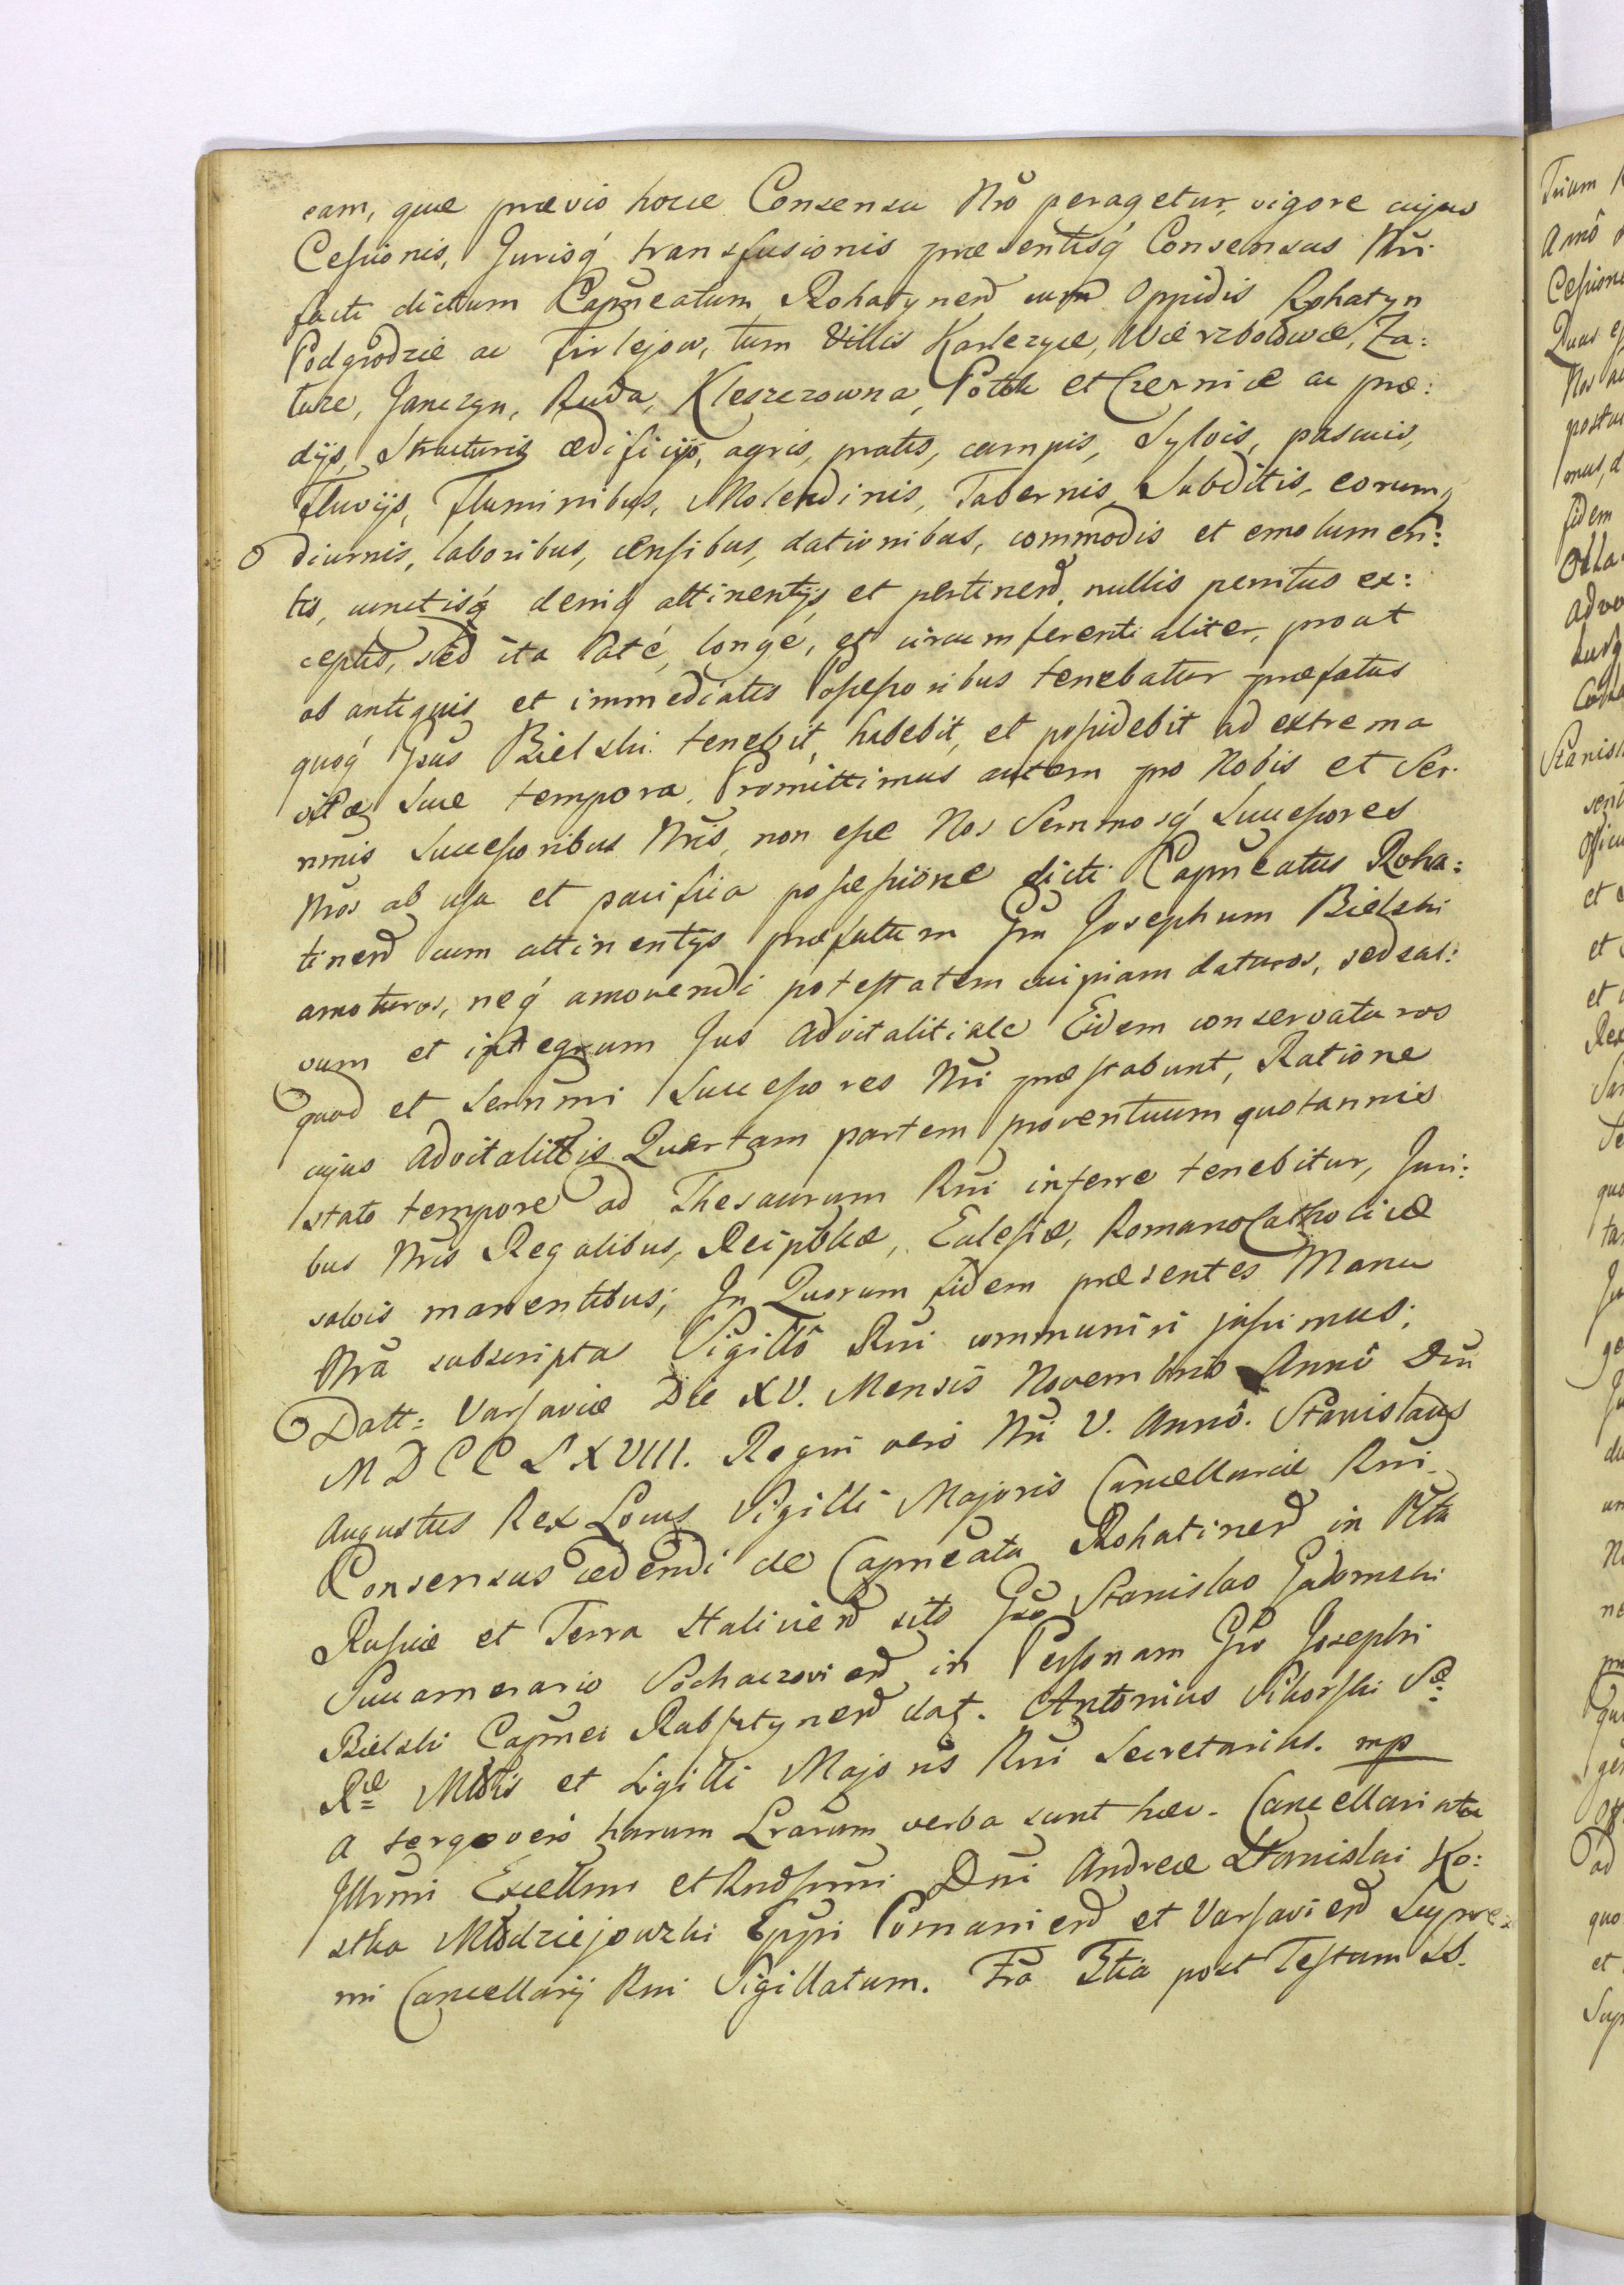 eam, quæ prævio hocce Consensu Nrõ peragetur, vigore cujus
Cessionis, Jurisq́ transfusionis præsentisq́ Consensus Nri
facti dictum Capneatum Rohatynen cum Oppidis Rohatyn
Podgrodzie ac Firlejow, tum Villis Karlezyce, Wierzbolowce, Za:
luze, Janczyn, Ruda, Kleszczowna, Potok et Czerniæ ac præ:
dijs, Structuris ædificijs, agris, pratis, campis, Sylvis, pascuis,
Fluvijs, Fluminibus, Molendinis, Tabernis, Subditis, eorumq́
diurnis, laboribus, censibus, dationibus, commodis et emolumen:
tis, cunctisq́ deniq́ attinentijs et pertinen, nullis penitus ex:
ceptis, sed ita laté, longé, et circumferentialiter, prout
ab antiquis et immediatis Possessoribus tenebatur præfatus
quoq́ Gsus Bielski tenebit, habebit, et possidebit ad extrema
vitæ suæ tempora. Promittimus autem pro Nobis et Ser:
nmis Successoribus Nris, non esse Nos Sernmosq́ Successores
Nros ab usu et pacifica possessione dicti Capneatus Roha:
tinen cum attinentijs præfatum Gm Josephum Bielski
amoturos, neq́ amovendi potestatem cuipiam daturos, sed sal:
vum et integrum Jus advitalitiale Eidem conservaturos
quod et Sernmi Successores Nri præstabunt, Ratione
cujus advitalitatis Quartam partem proventuum quotannis
stato tempore ad Thesaurum Rni inferre tenebitur, Juri:
bus Nris Regalibus, Reiplicæ, Eclesiæ, Romano Catholicæ
salvis manentibus; In Quorum fidem præsentes Manu
Nra subscripta Sigillô Rni communiri jussimus;
Datt: Varsaviæ Die XV. Mensis Novembris Annô Dni
MDCCLXVIII. Regni verò Nri V. Annô. Stanislaus
Augustus Rex Locus Sigilli Majoris Cancellariæ Rni.
Consensus cedendi de Capneatu Rohatinen in Pltu
Russiæ et Terra Halicien sito Gso Stanislao Gadomski
Succamerario Sochaczovien in Personam Gso Josephi
Bielski Capnei Rabsztynen dat. Antonius Sikorski Sæ
Ræ Mttis et Sigilli Majoris Rni Secretarius. mp
A tergo verò harum Lrarum verba sunt hæc. Cancellariatu
Jllrmi Excellmi et Rndssmi Dni Andreæ Stanislai Ko:
stka Młodziejowski Eppi Posnanien et Varsavien Supre:
mi Cancellarij Rni Sigillatum. Fra Stia post Festum SS.